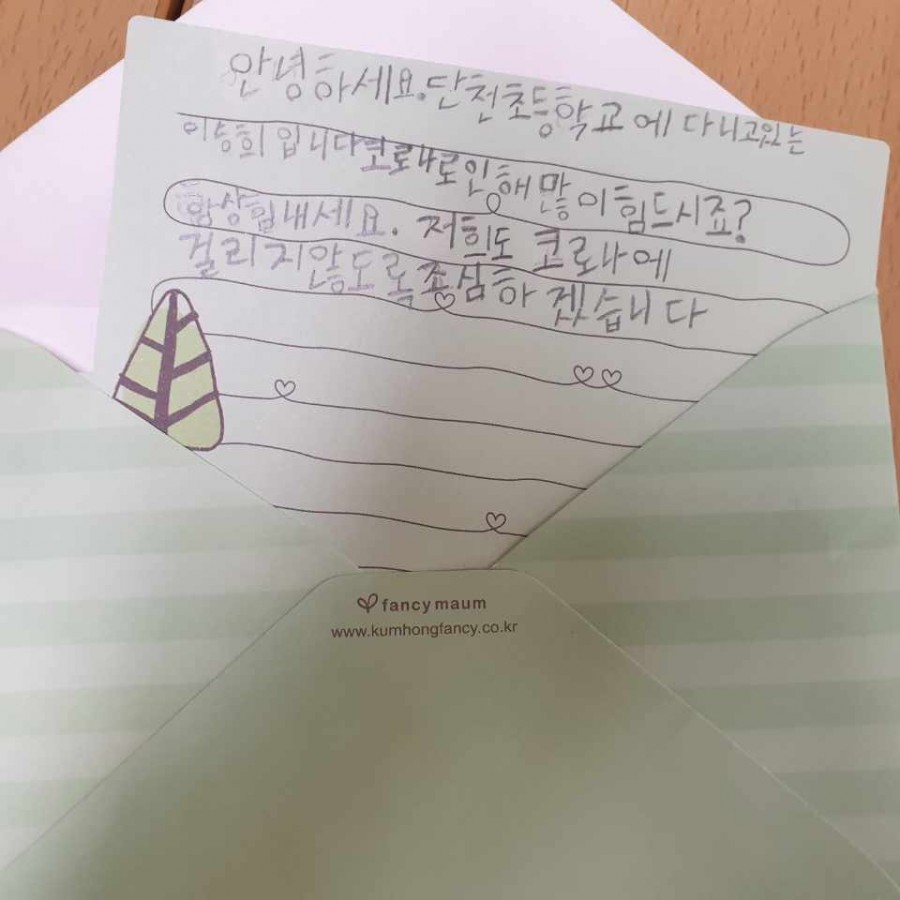 안녕하세요.단천초등학교에 다니고있는
이승희 입니다코로나로인해 많이힘드시죠?
항상힘내세요. 저희도 코로나에
걸리지않도록조심하겠습니다
fancy maum
www.kumhongfancy.co.kr